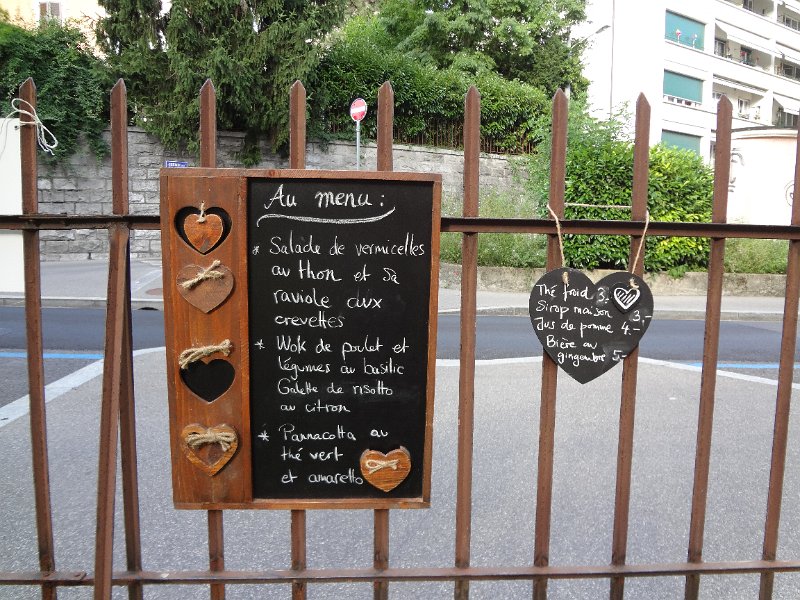 Au menu :
* Salade de vermicelles
au thon et sa
raviole aux
crevettes
* Wok de poulet et
légumes au basilic
Galette de risotto
au citron
* Pannacotta au
thé vert
et amaretto
Thé froid 3.-
Sirop maison 3.-
Jus de pomme 4.-
Bière au
gingembre 5.-